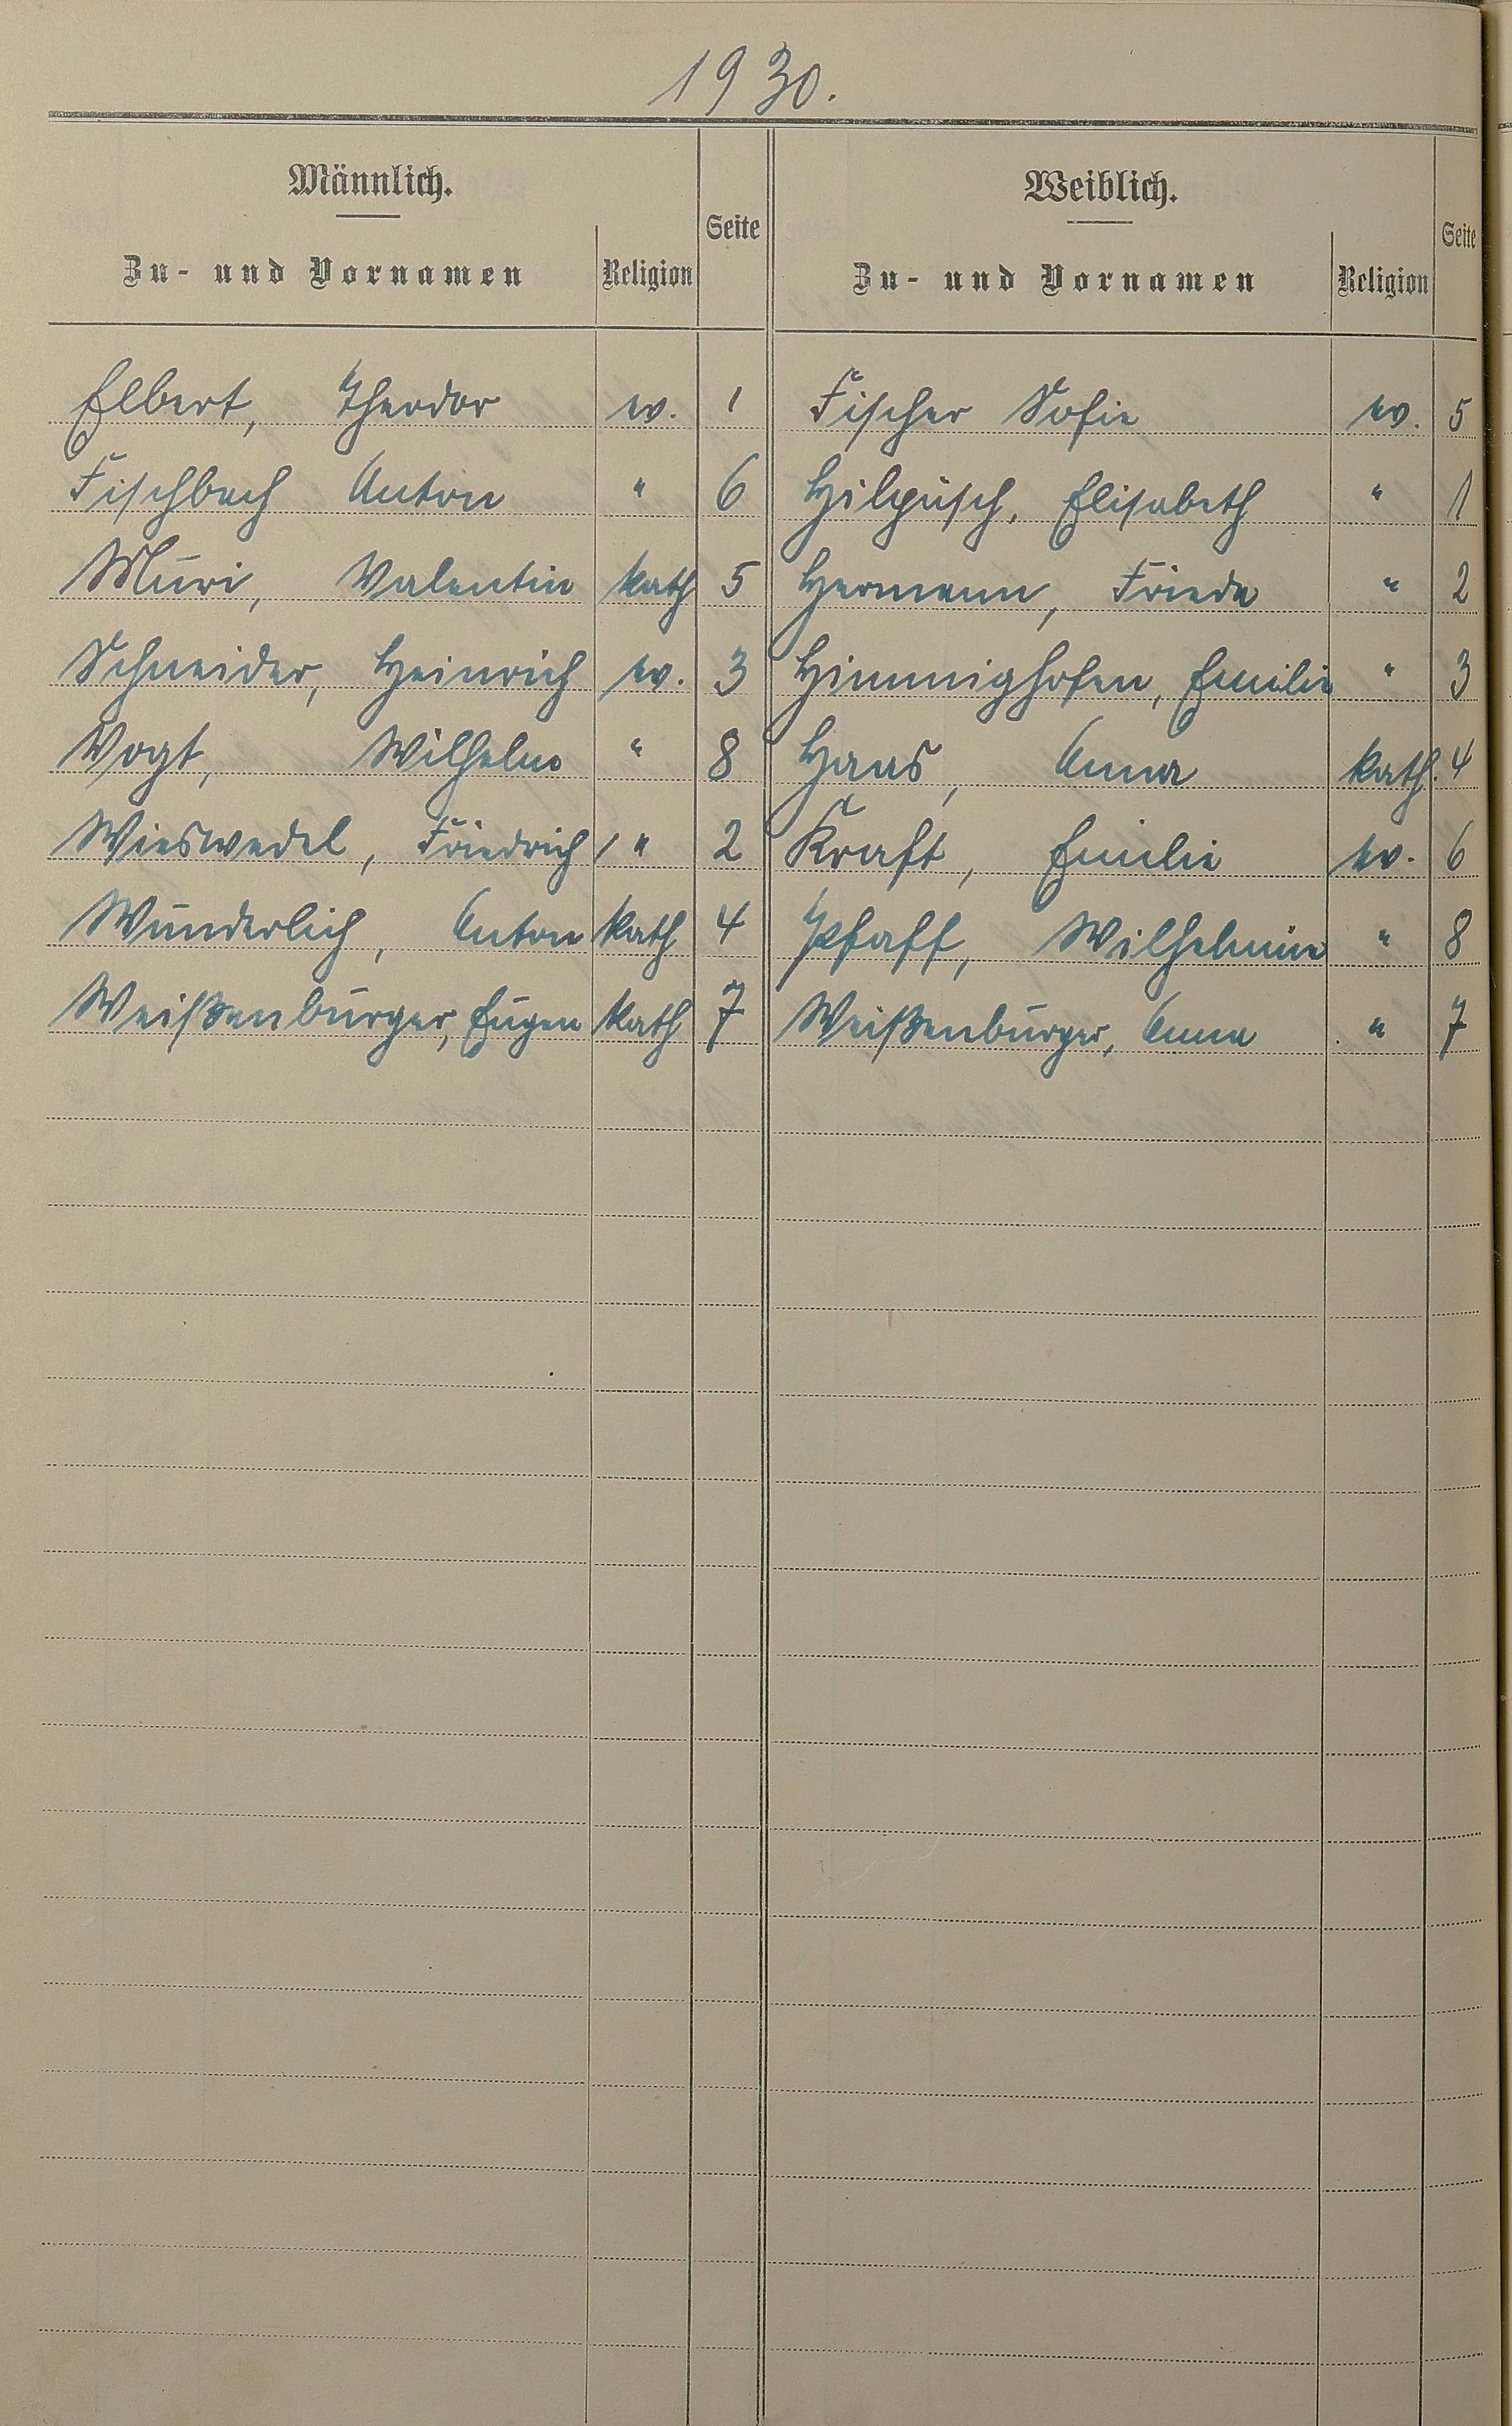 1930.
Männlich.
Zu- und Vornamen Religion Seite
Elbert, Theodor ev. 1
Fischbach Anton " 6
Muri, Valentin kath 5
Schneider, Heinrich ev. 3
Vogt, Wilhelm " 8
Wieswedel, Friedrich " 2
Wunderlich, Anton kath 4
Weißenburger, Eugen kath 7
Weiblich.
Zu- und Vornamen Religion Seite
Fischer Sofie ev. 5
Hilpüsch, Elisabeth " 1
Hermann, Frieda " 2
Himmighofen, Emilie " 3
Haas, Anna kath. 4
Kraft, Emilie ev. 6
Pfaff, Wilhelmine " 8
Weißenburger, Anna " 7